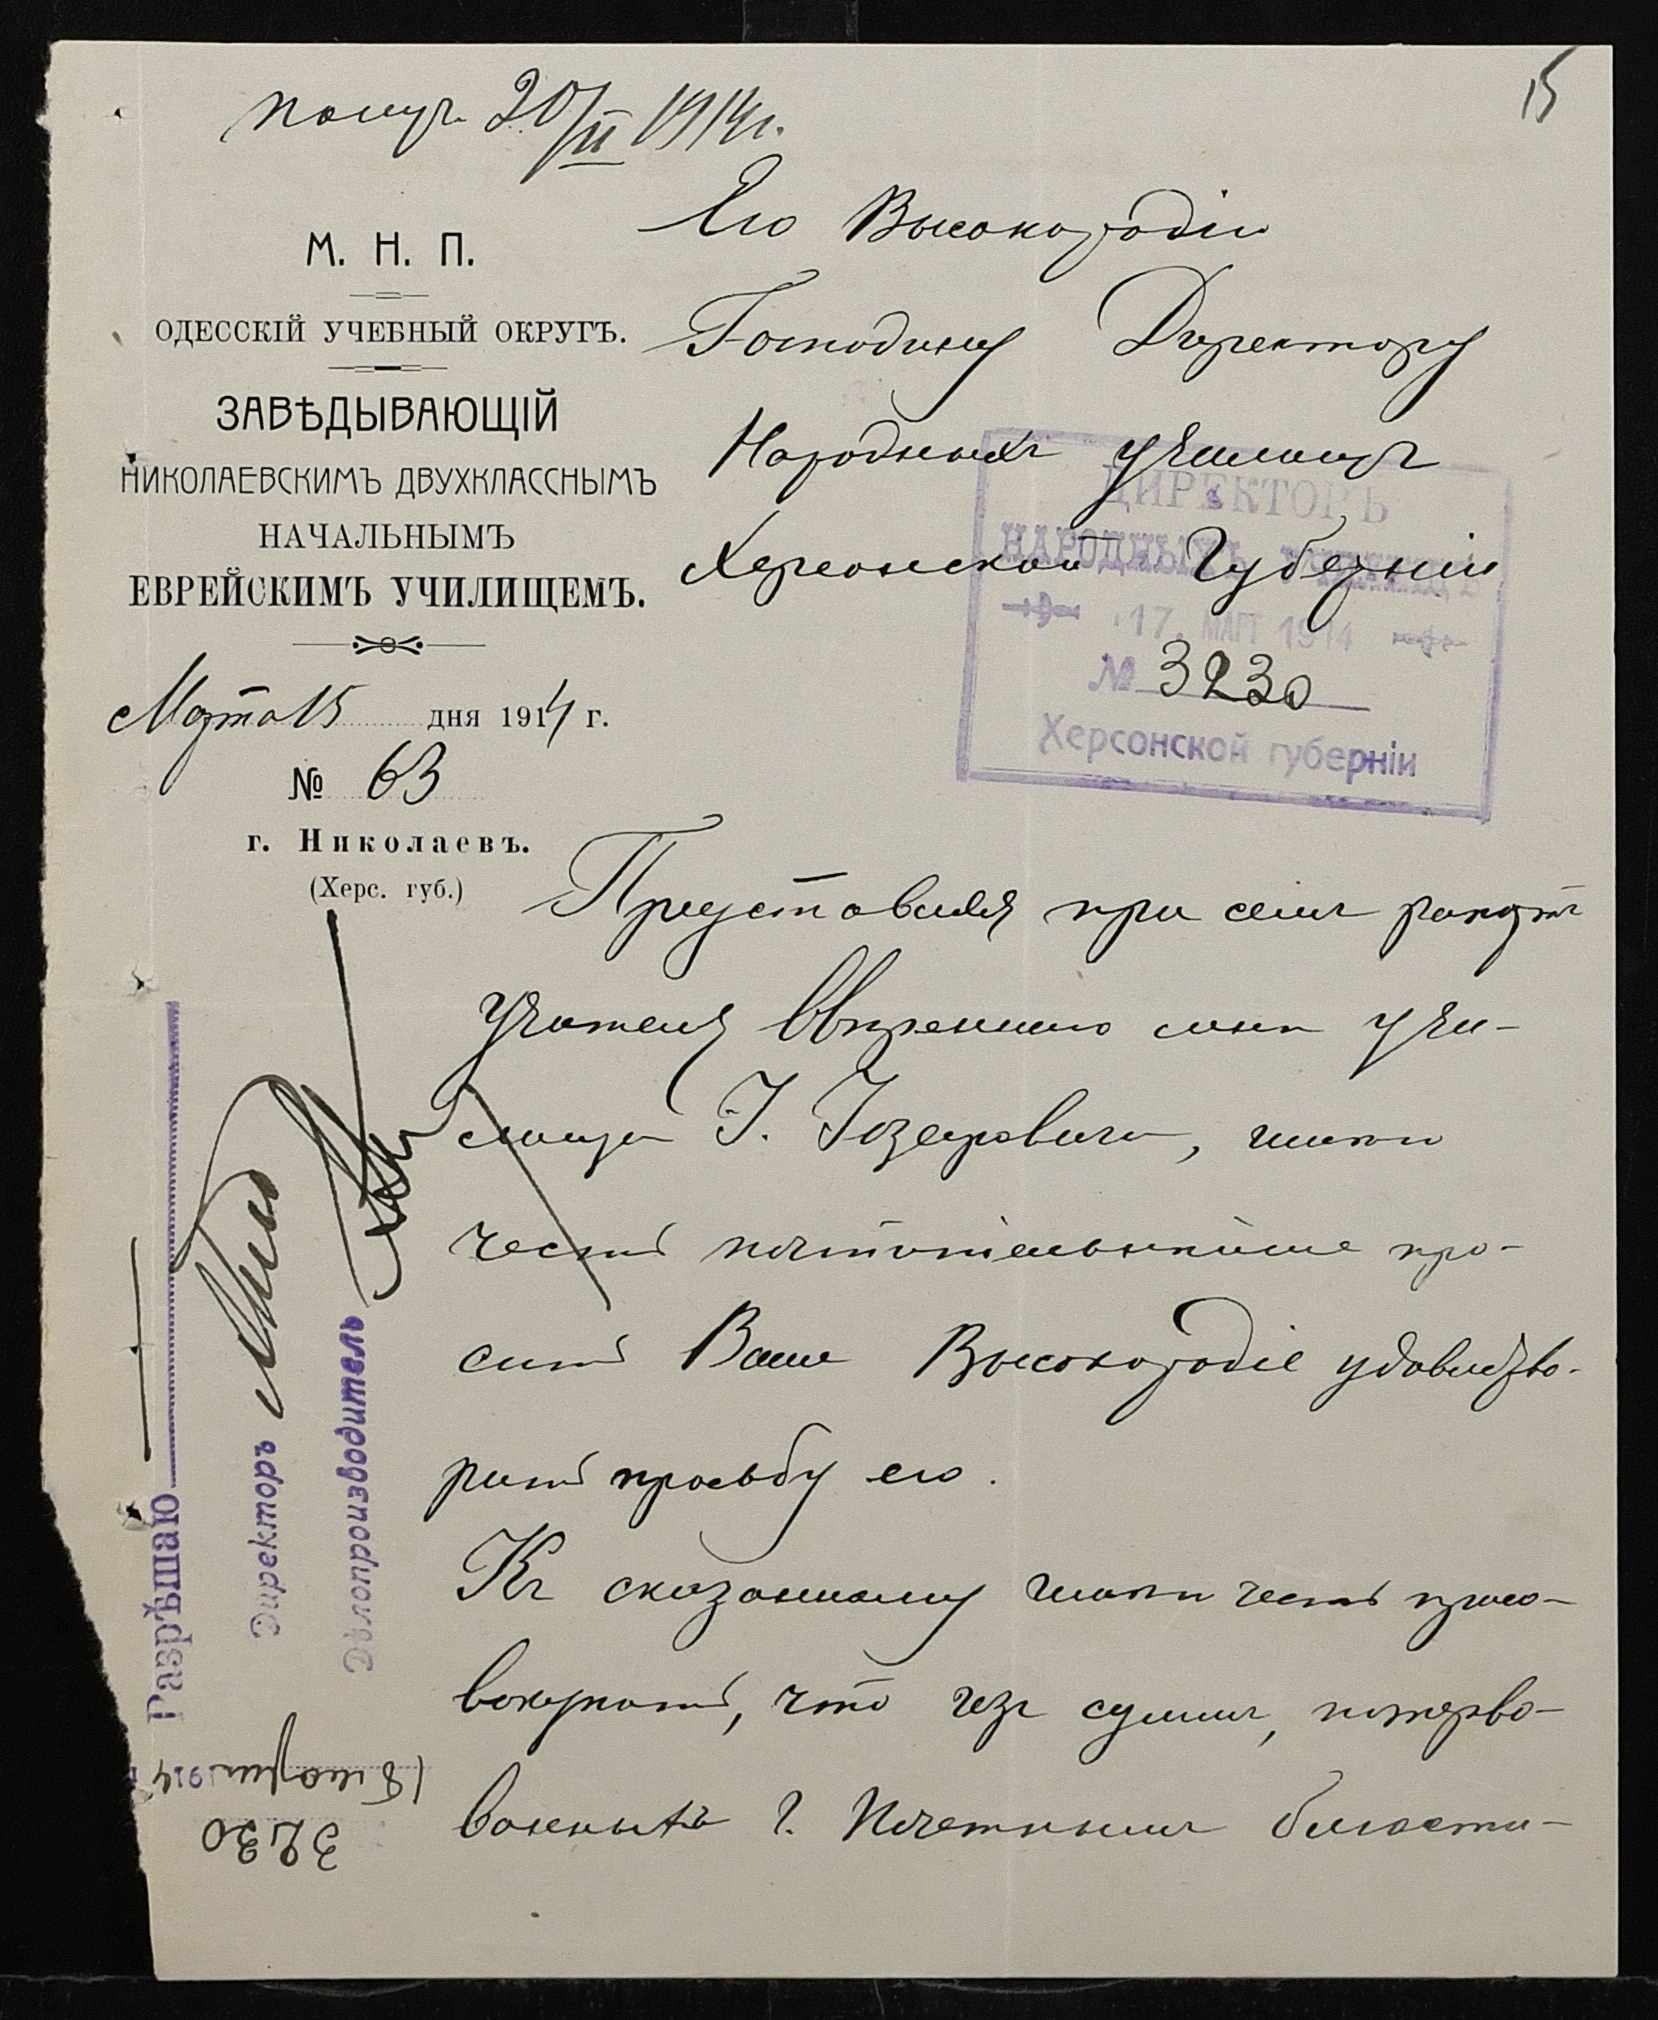 15
получ. 20/III 1914 г.
М. Н. П.
ОДЕССКІЙ УЧЕБНЫЙ ОКРУГЪ.
ЗАВѢДЫВАЮЩІЙ
НИКОЛАЕВСКИМЪ ДВУХКЛАССНЫМЪ
НАЧАЛЬНЫМЪ
ЕВРЕЙСКИМЪ УЧИЛИЩЕМЪ.
Марта 15 дня 1914 г.
№ 63
г. Николаевъ.
(Херс. губ.)
Его Высокородію
Господину Директору
Народныхъ училищъ
Херсонской Губерніи
ДИРЕКТОРЪ
НАРОДНЫХЪ УЧИЛИЩЪ
17. МАРТ 1914
№ 3230
Херсонской губерніи
Представляя при семъ рапортъ
учителя ввѣреннаго мнѣ учи-
лища І. Іозеровича, имѣю
честь почтительнѣйше про-
сить Ваше Высокородіе удовлетво-
рить просьбу его.
Къ сказанному имѣю честь присо-
вокупить, что изъ суммъ, пожертво-
ванныхъ г. Почетнымъ блюсти-
Разрѣшаю
Директоръ
Дѣлопроизводитель
18 марта 1914
3230